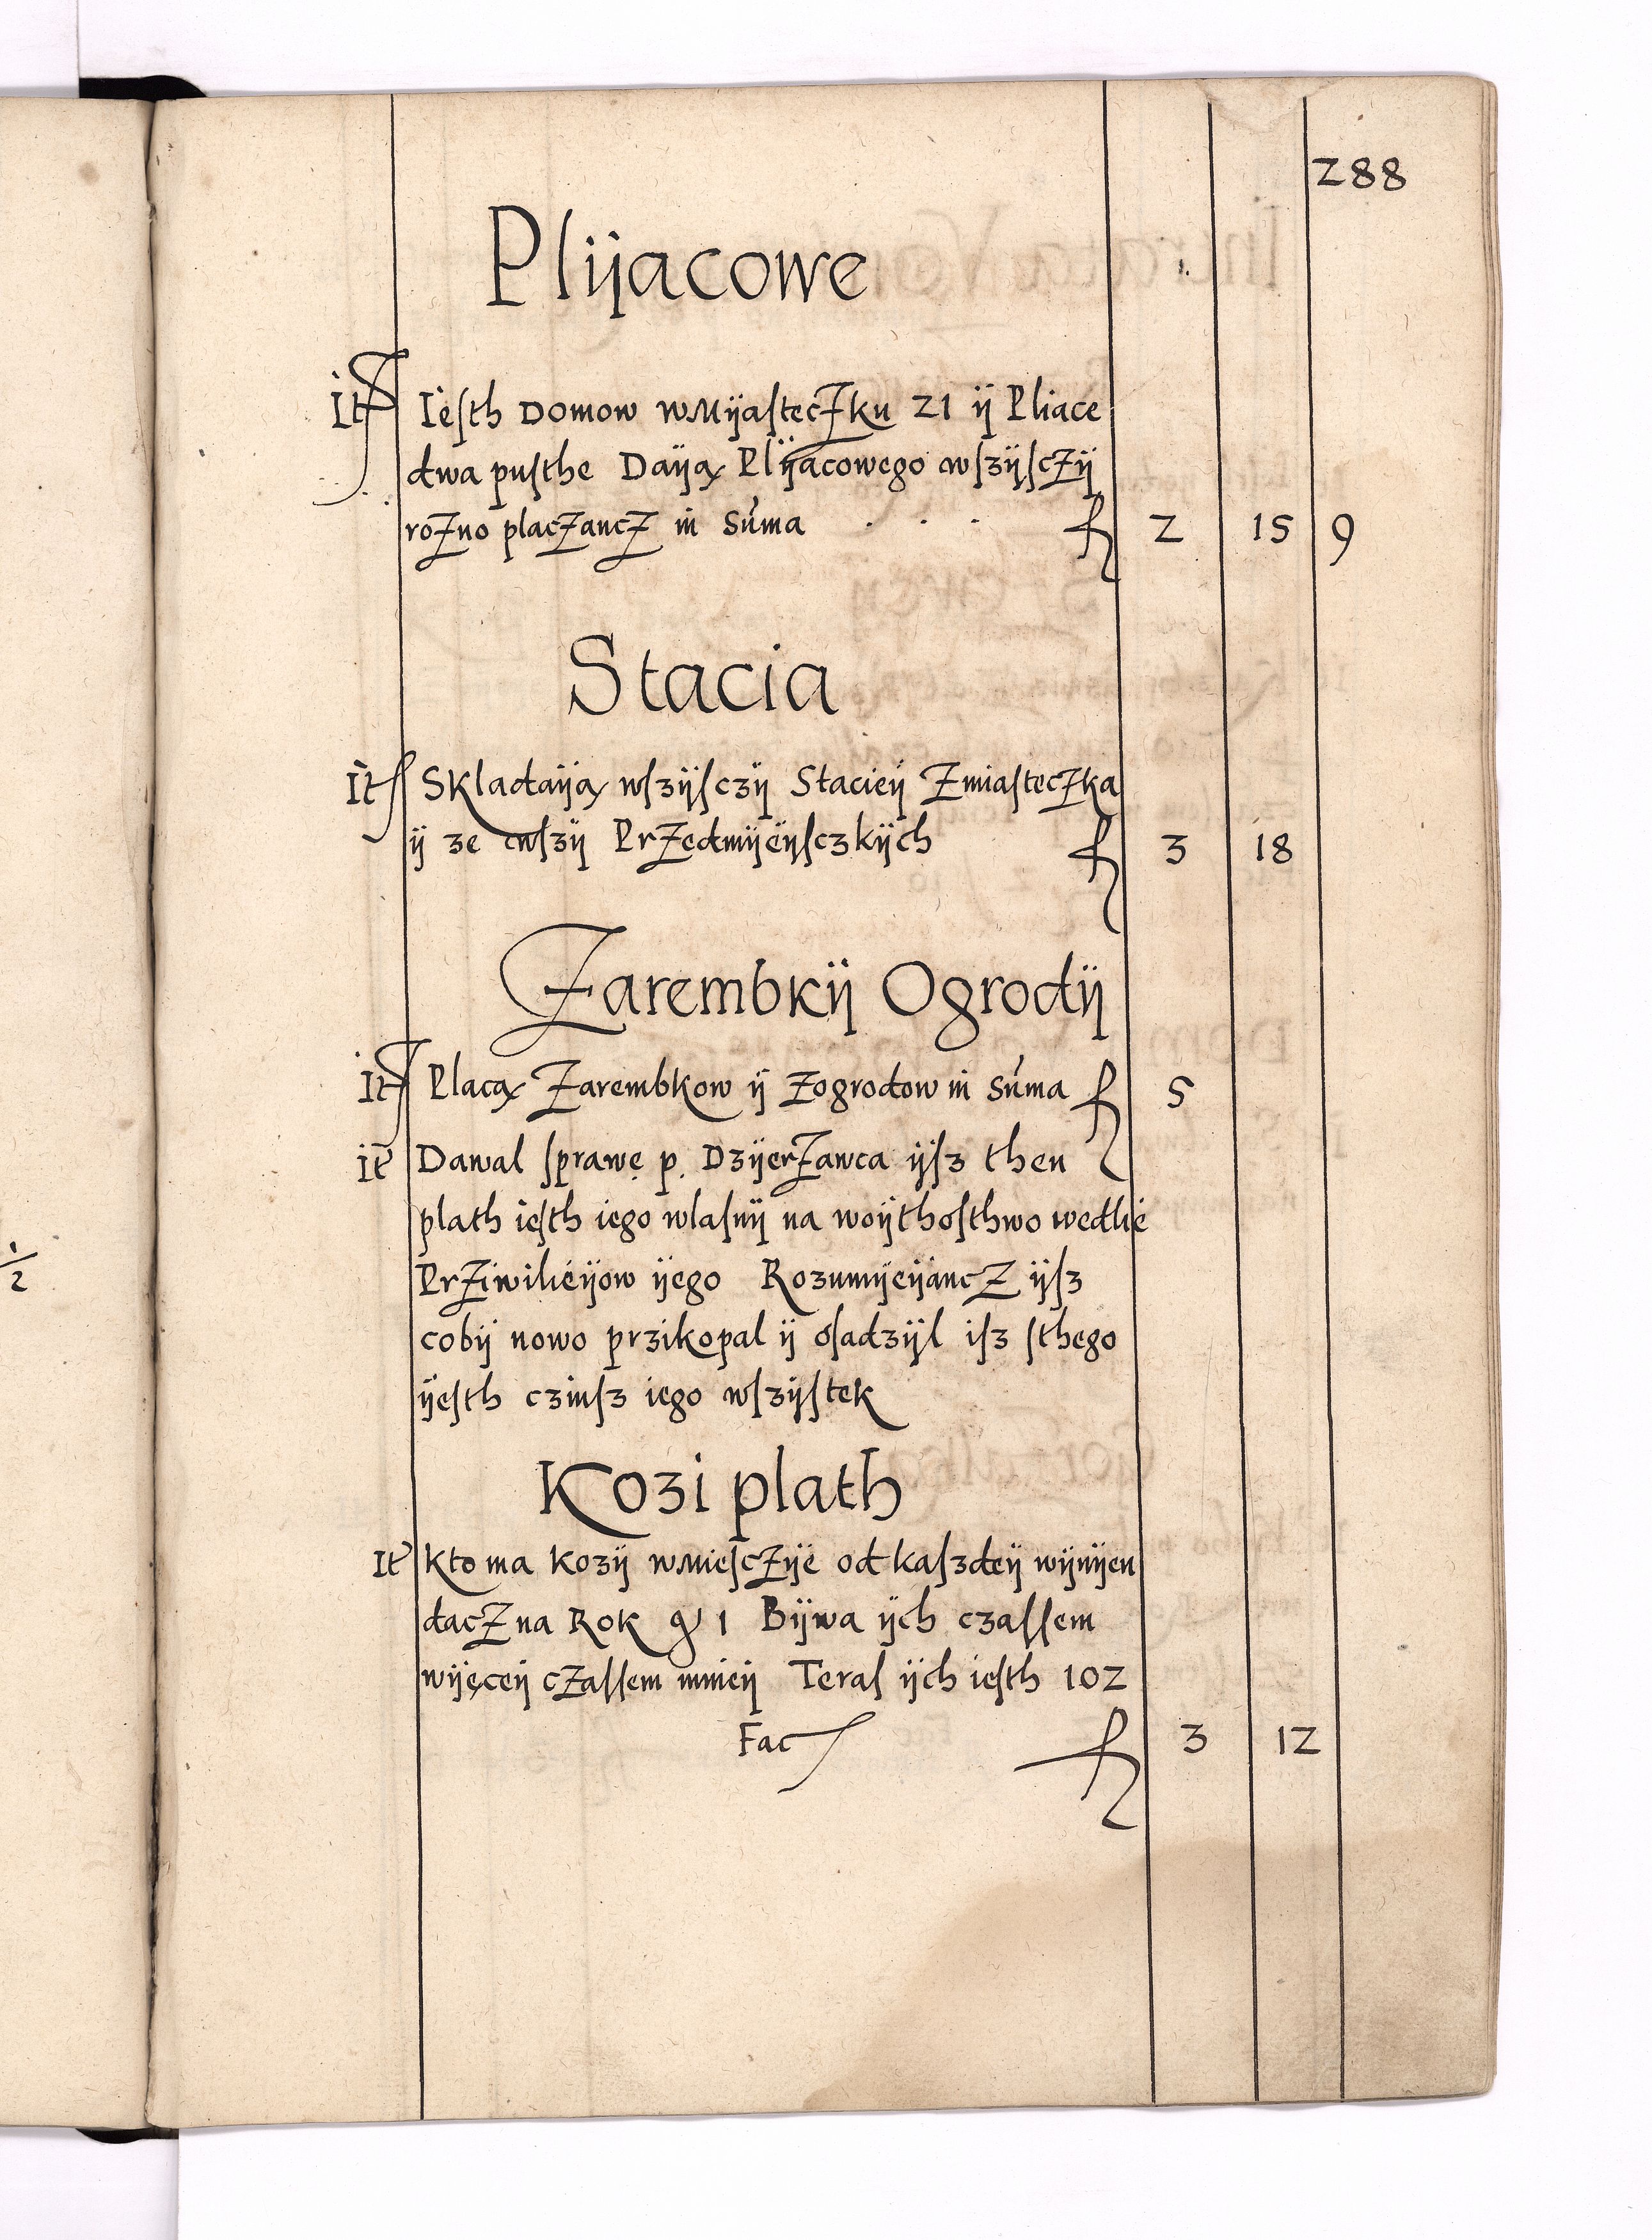 288
Plijacowe
It Iesth Domow wMijasteczku 21 ij Pliace
dwa pusthe Daija Plijacowego wszijsczij
rozno placzancz in Suma . . . fl 2 15 9
Stacia
It Skladaija wszijsczij Staciej Zmiasteczka
ij ze wszij Przedmijeijsczkijch fl 3 18
Zarembkij Ogrodij
It Placą Zarembkow ij Zogrodow in Suma fl 5
It Dawal sprawę p. Dzijerzawca ijsz then
plath iesth iego wlasnij na woijthosthwo wedlie
Prziwilieijow ijego Rozumijeijancz ijsz
cobij nowo przikopal ij osadzijl isz sthego
ijesth czinsz iego wszijstek
Kozi plath
It kto ma kozij wMiesczije od kaszdeij wijnijen
dacz na Rok gr 1 Bijwa ijch czassem
wijęceij czassem mnieij Teras ijch iesth 102
Fac fl 3 12
1/2